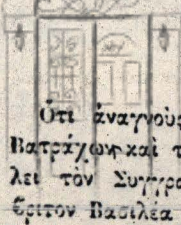 Ὅτι ἀναγνοὺς
Βατράχων καὶ τ
λει τὸν Συγγρα
ϐριτον Βασιλέα